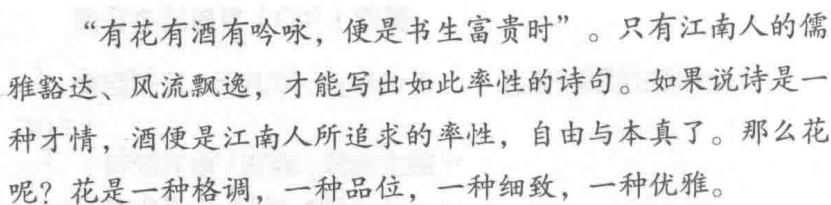 “有花有酒有吟咏，便是书生富贵时”。只有江南人的儒
雅豁达、风流飘逸，才能写出如此率性的诗句。如果说诗是一
种才情，酒便是江南人所追求的率性，自由与本真了。那么花
呢？花是一种格调，一种品位，一种细致，一种优雅。